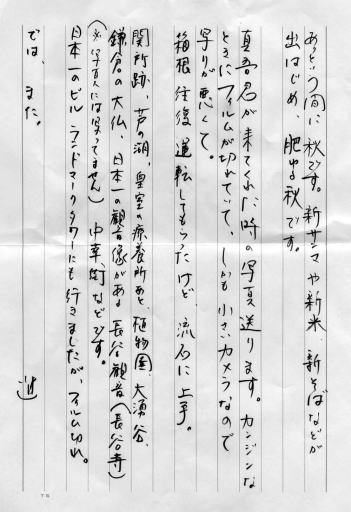 あっという間に秋です。新サンマや新米、新そばなどが
出はじめ、肥ゆる秋です。
真吾君が来てくれた時の写真送ります。カンジンな
ときにフィルムが切れていて、しかも小さいカメラなので
写りが悪くて。
箱根往復運転してもらったけど、流石に上手。
関所跡、芦の湖、皇室の療養所あと、植物園、大湧谷、
鎌倉の大仏、日本一の観音像がある長谷観音(長谷寺)
(※写真には写ってません) 中華街などです。
日本一のビル ランドマークタワーにも行きましたが、フィルム切れ。
では、また。
進